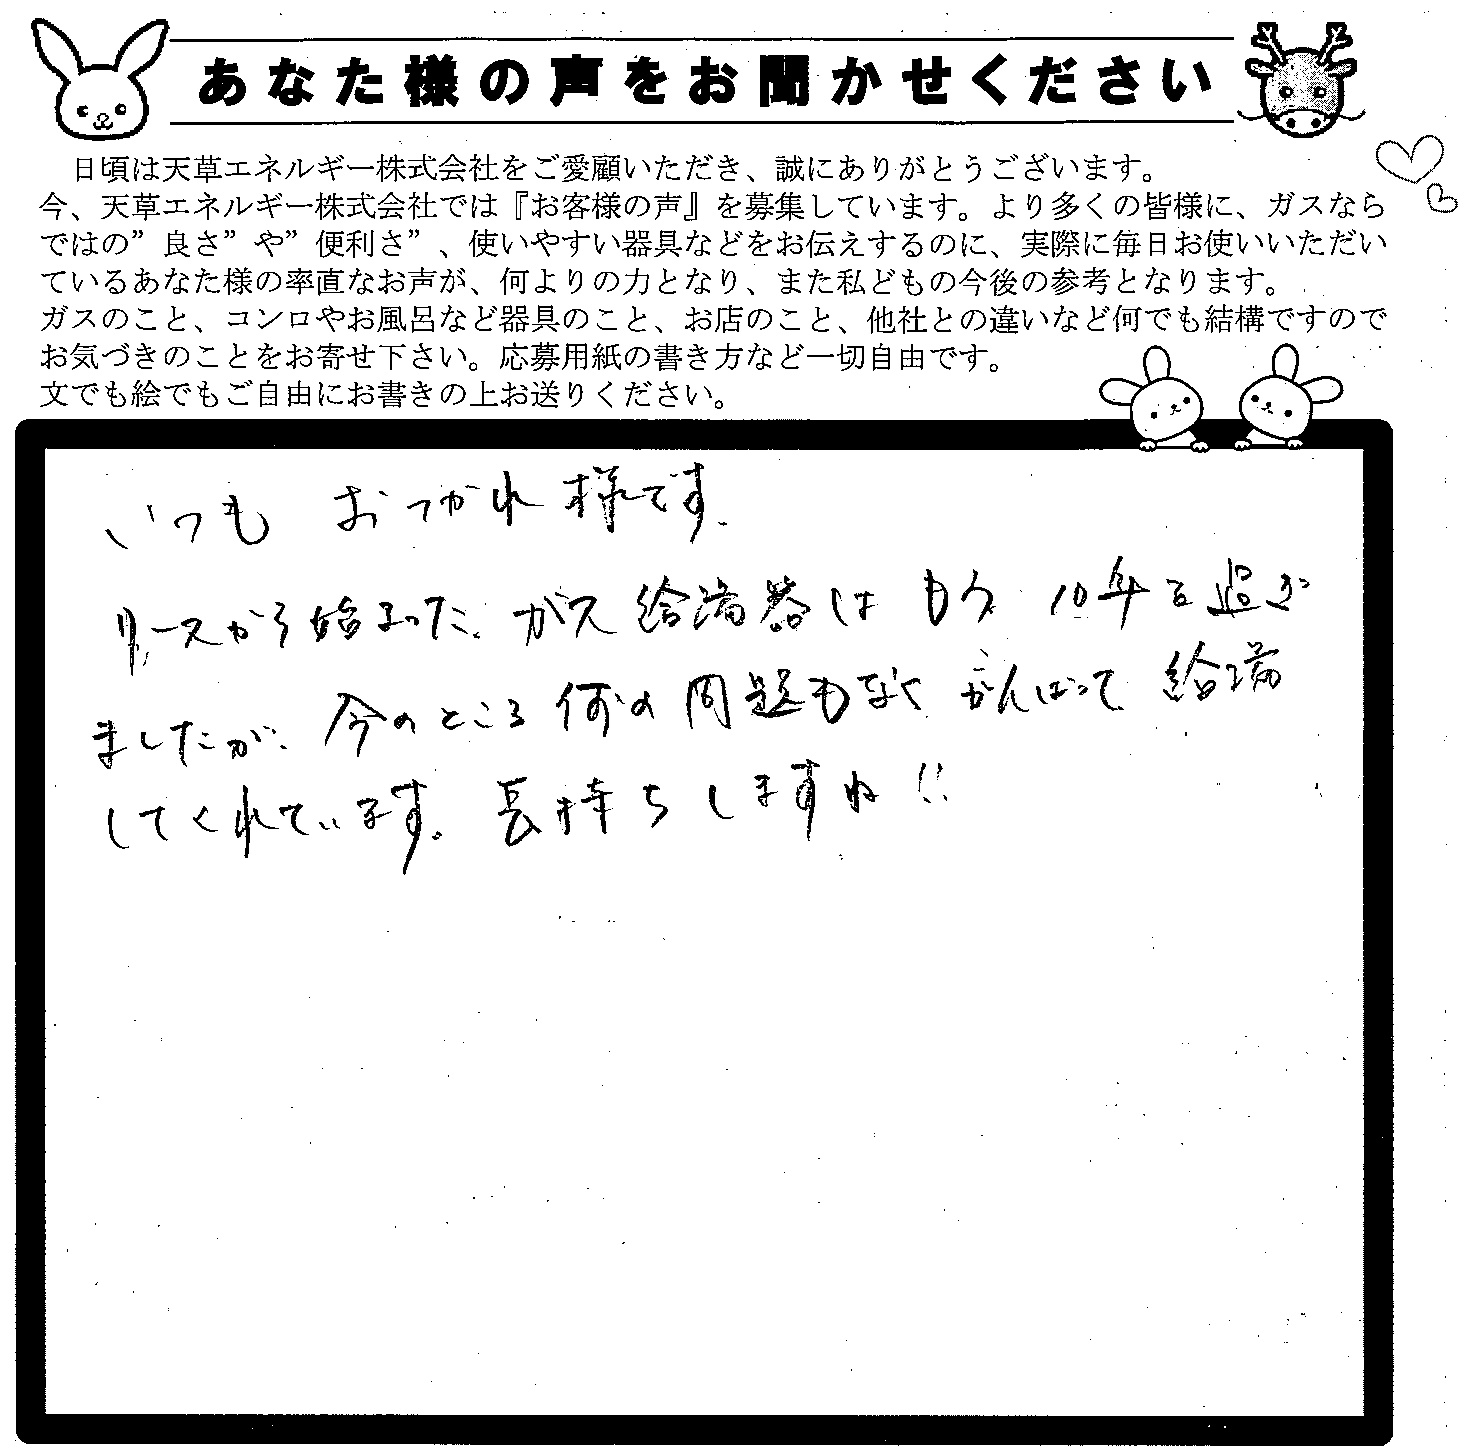 あなた様の声をお聞かせください
日頃は天草エネルギー株式会社をご愛顧いただき、誠にありがとうございます。
今、天草エネルギー株式会社では『お客様の声』を募集しています。より多くの皆様に、ガスなら
ではの”良さ”や”便利さ”、使いやすい器具などをお伝えするのに、実際に毎日お使いいただい
ているあなた様の率直なお声が、何よりの力となり、また私どもの今後の参考となります。
ガスのこと、コンロやお風呂など器具のこと、お店のこと、他社との違いなど何でも結構ですので
お気づきのことをお寄せ下さい。応募用紙の書き方など一切自由です。
文でも絵でもご自由にお書きの上お送りください。
いつも おつかれ様です。
リースから始まった、ガス給湯器は もう 10年を過ぎ
ましたが、今のところ何の問題もなく がんばって 給湯
してくれています。長持ちしますね!!